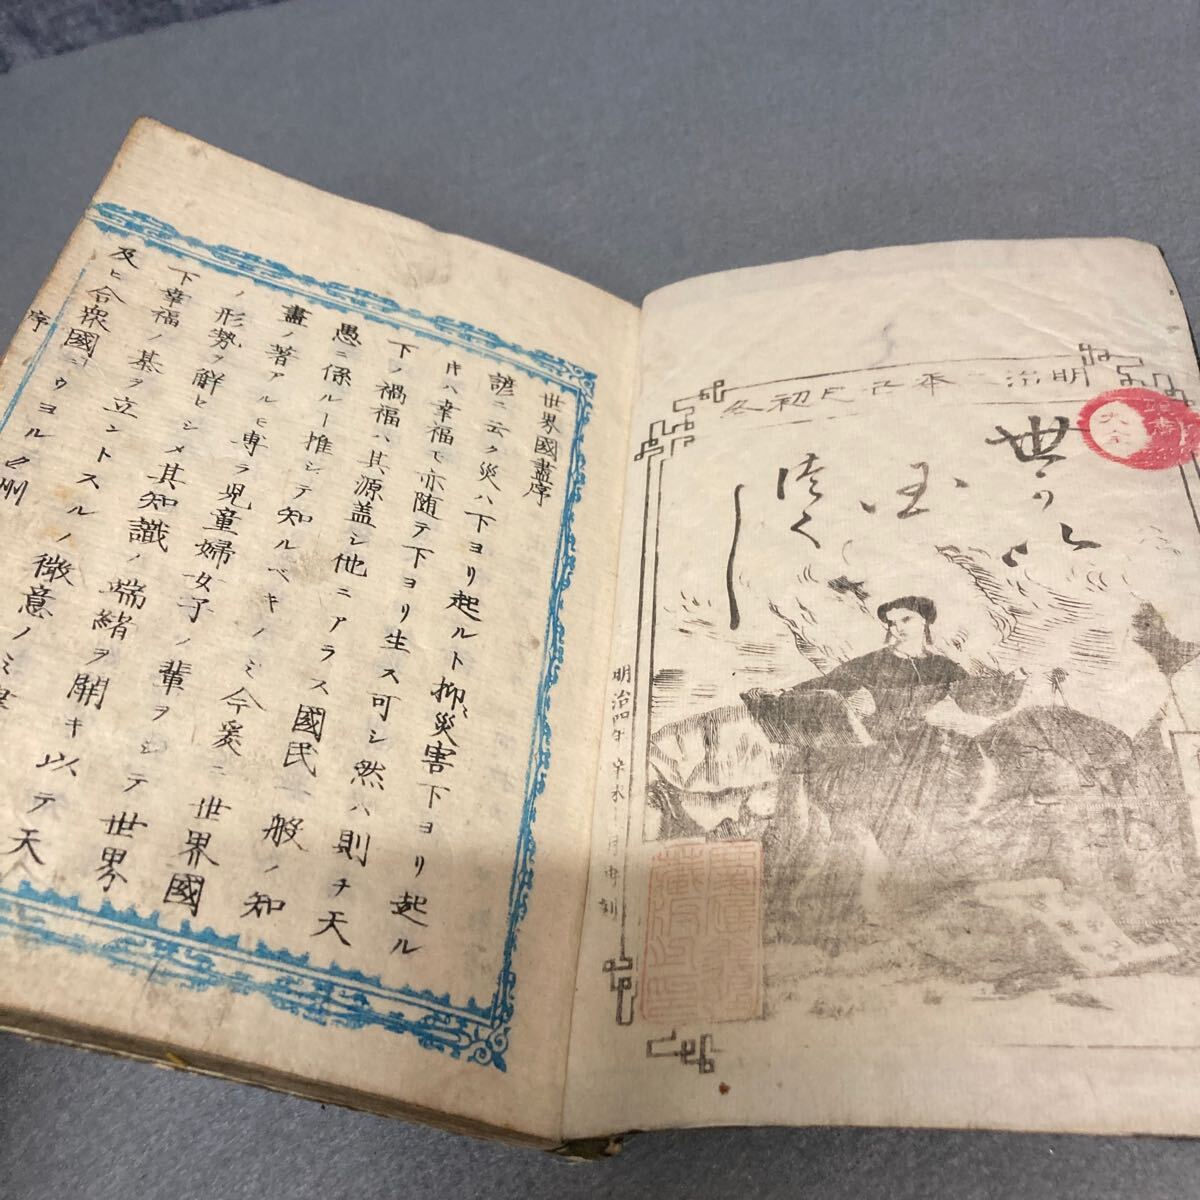 明治二年己巳初冬
世かい
国
津くし
明治四年辛未十二月再刻
慶應義塾
蔵版之印
世界國盡序
諺ニ云ク災ハ下ヨリ起ルト抑〻災害下ヨリ起ル
片ハ幸福モ亦随テ下ヨリ生ス可シ然ハ則チ天
下ノ禍福ハ其源盖シ他ニアラス國民一般ノ知
愚ニ係ルー推シテ知ルベキノミ今爰ニ世界國
盡ノ著アルモ専ラ児童婦女子ノ輩ヲシテ世界
ノ形勢ヲ解セシメ其知識ノ端緒ヲ開キ以テ天
下幸福ノ基ヲ立ントスルノ微意ノミ
及ヒ合衆國ニウヨル
序